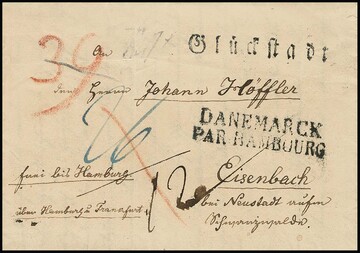 39
An
Glückstadt
den Herrn Johann Höffler
DANEMARCK
PAR HAMBOURG
frei bis Hamburg
Eisenbach
über Hamburg u. Frankfurt
bei Neustadt aufm
Schwarzwalde.